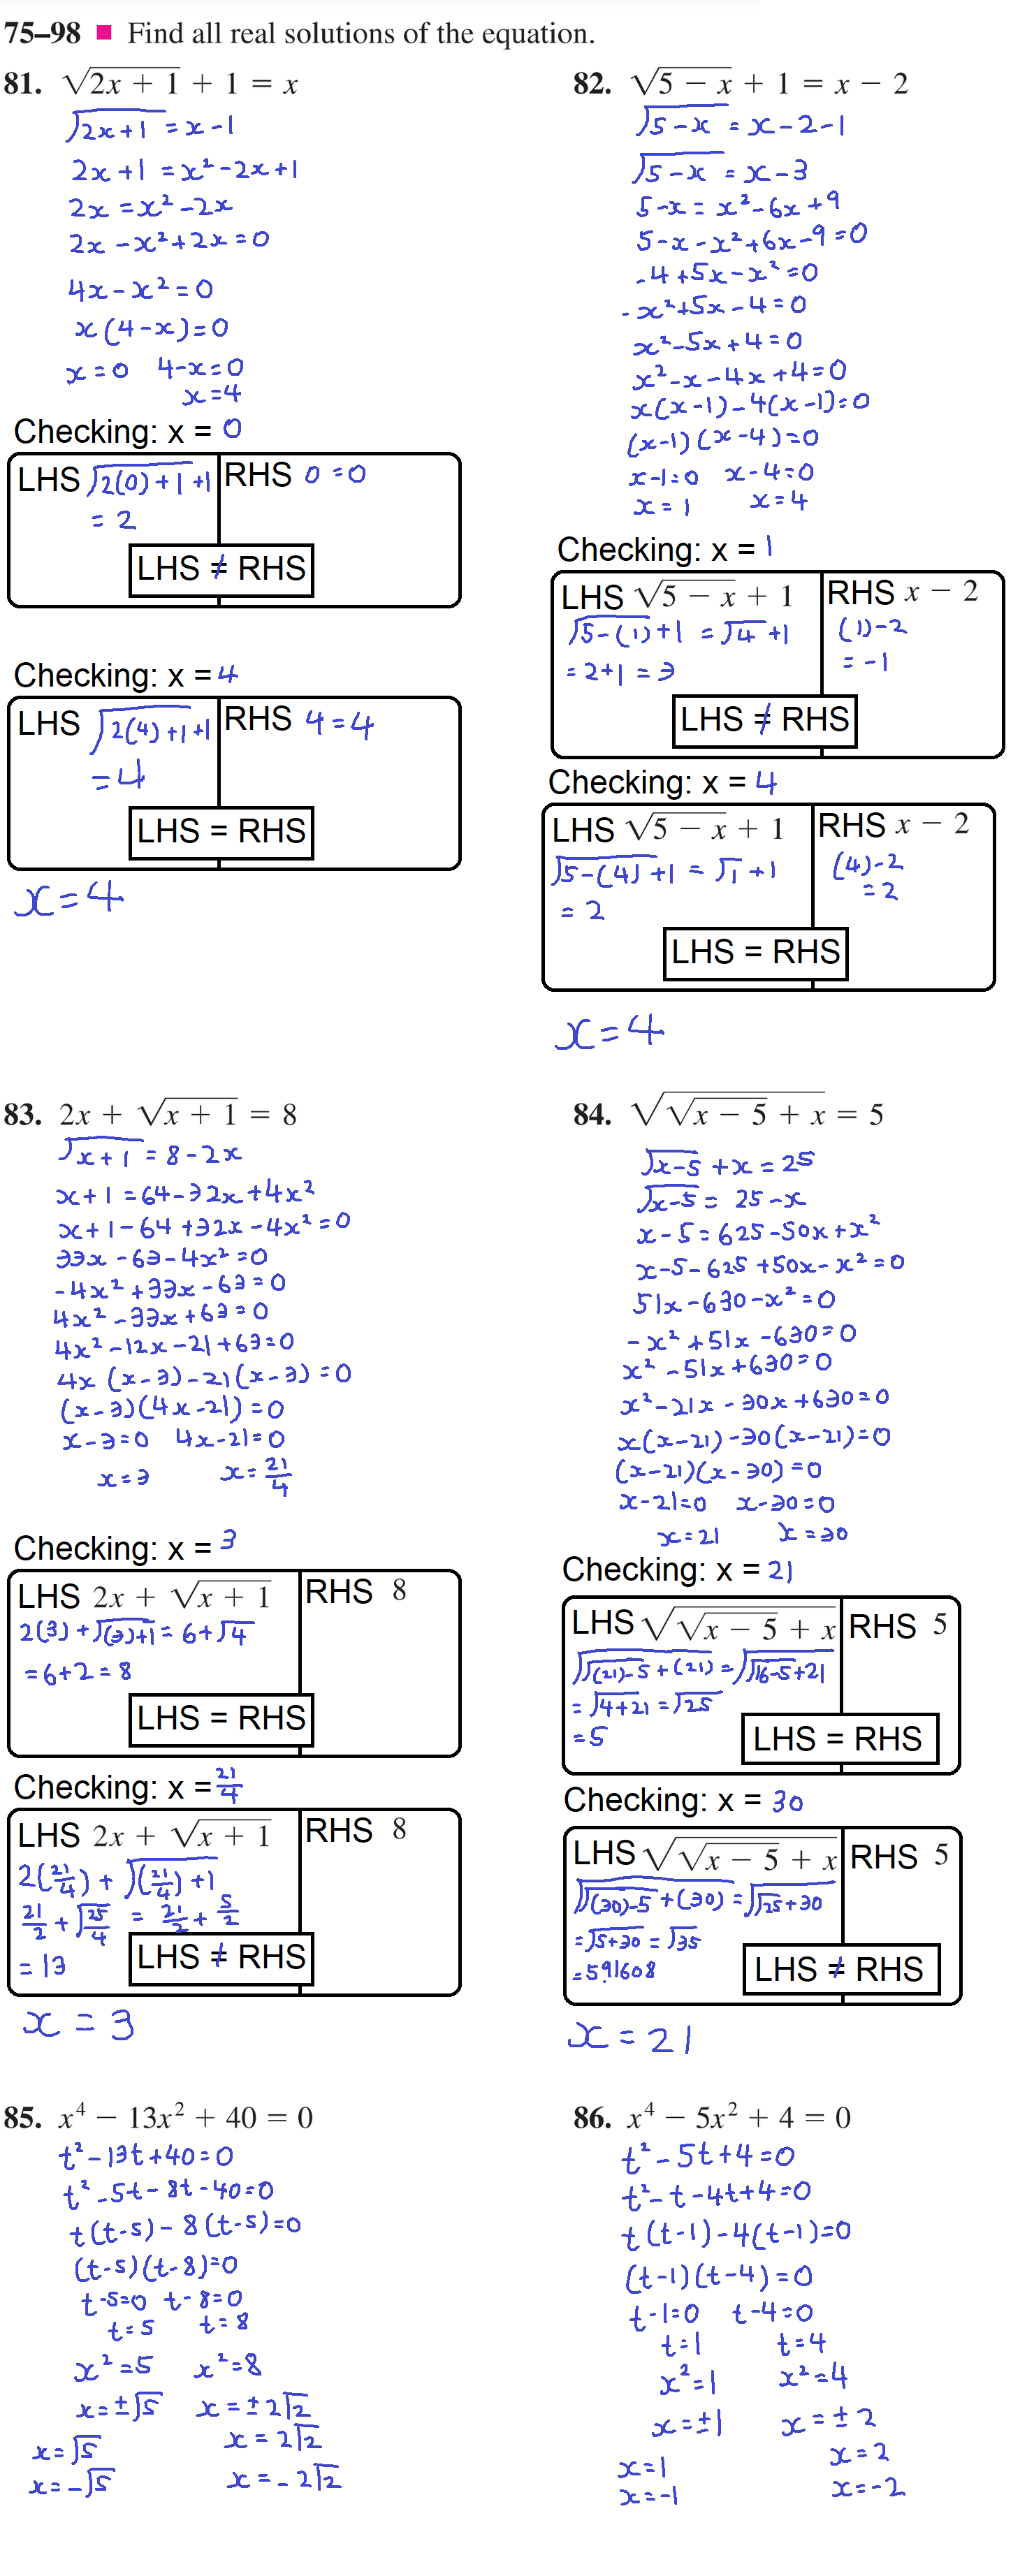 75–98 ■ Find all real solutions of the equation.
81. √(2x + 1) + 1 = x
√(2x+1) = x-1
2x+1 = x²-2x+1
2x = x²-2x
2x-x²+2x=0
4x-x²=0
x(4-x)=0
x=0 4-x=0
x=4
Checking: x = 0
LHS √(2(0)+1)+1 RHS 0=0
= 2
LHS ≠ RHS
Checking: x = 4
LHS √(2(4)+1)+1 RHS 4=4
=4
LHS = RHS
x=4
82. √(5 − x) + 1 = x − 2
√(5-x) = x-2-1
√(5-x) = x-3
5-x = x²-6x+9
5-x-x²+6x-9=0
-4+5x-x²=0
-x²+5x-4=0
x²-5x+4=0
x²-x-4x+4=0
x(x-1)-4(x-1)=0
(x-1)(x-4)=0
x-1=0 x-4=0
x=1 x=4
Checking: x = 1
LHS √(5 − x) + 1 RHS x − 2
√(5-(1))+1 = √4+1 (1)-2
=2+1=3 =-1
LHS ≠ RHS
Checking: x = 4
LHS √(5 − x) + 1 RHS x − 2
√(5-(4))+1 = √1+1 (4)-2
=2 =2
LHS = RHS
x=4
83. 2x + √(x + 1) = 8
√(x+1) = 8-2x
x+1=64-32x+4x²
x+1-64+32x-4x²=0
33x-63-4x²=0
-4x²+33x-63=0
4x²-33x+63=0
4x²-12x-21+63=0
4x(x-3)-21(x-3)=0
(x-3)(4x-21)=0
x-3=0 4x-21=0
x=3 x=21/4
Checking: x = 3
LHS 2x + √(x + 1) RHS 8
2(3)+√((3)+1) = 6+√4
=6+2=8
LHS = RHS
Checking: x = 21/4
LHS 2x + √(x + 1) RHS 8
2(21/4)+√((21/4)+1)
21/2+√(25/4) = 21/2+5/2
=13
LHS ≠ RHS
x = 3
84. √(√(x − 5) + x) = 5
√(x-5)+x=25
√(x-5)=25-x
x-5=625-50x+x²
x-5-625+50x-x²=0
51x-630-x²=0
-x²+51x-630=0
x²-51x+630=0
x²-21x-30x+630=0
x(x-21)-30(x-21)=0
(x-21)(x-30)=0
x-21=0 x-30=0
x=21 x=30
Checking: x = 21
LHS √(√(x − 5) + x) RHS 5
√(√((21)-5)+(21)) = √(√(16-5)+21)
=√(4+21)=√25
=5
LHS = RHS
Checking: x = 30
LHS √(√(x − 5) + x) RHS 5
√(√((30)-5)+(30)) = √(√25+30)
=√(5+30)=√35
=5.91608
LHS ≠ RHS
x=21
85. x⁴ − 13x² + 40 = 0
t²-13t+40=0
t²-5t-8t-40=0
t(t-5)-8(t-5)=0
(t-5)(t-8)=0
t-5=0 t-8=0
t=5 t=8
x²=5 x²=8
x=±√5 x=±2√2
x=√5 x=2√2
x=-√5 x=-2√2
86. x⁴ − 5x² + 4 = 0
t²-5t+4=0
t²-t-4t+4=0
t(t-1)-4(t-1)=0
(t-1)(t-4)=0
t-1=0 t-4=0
t=1 t=4
x²=1 x²=4
x=±1 x=±2
x=1 x=2
x=-1 x=-2